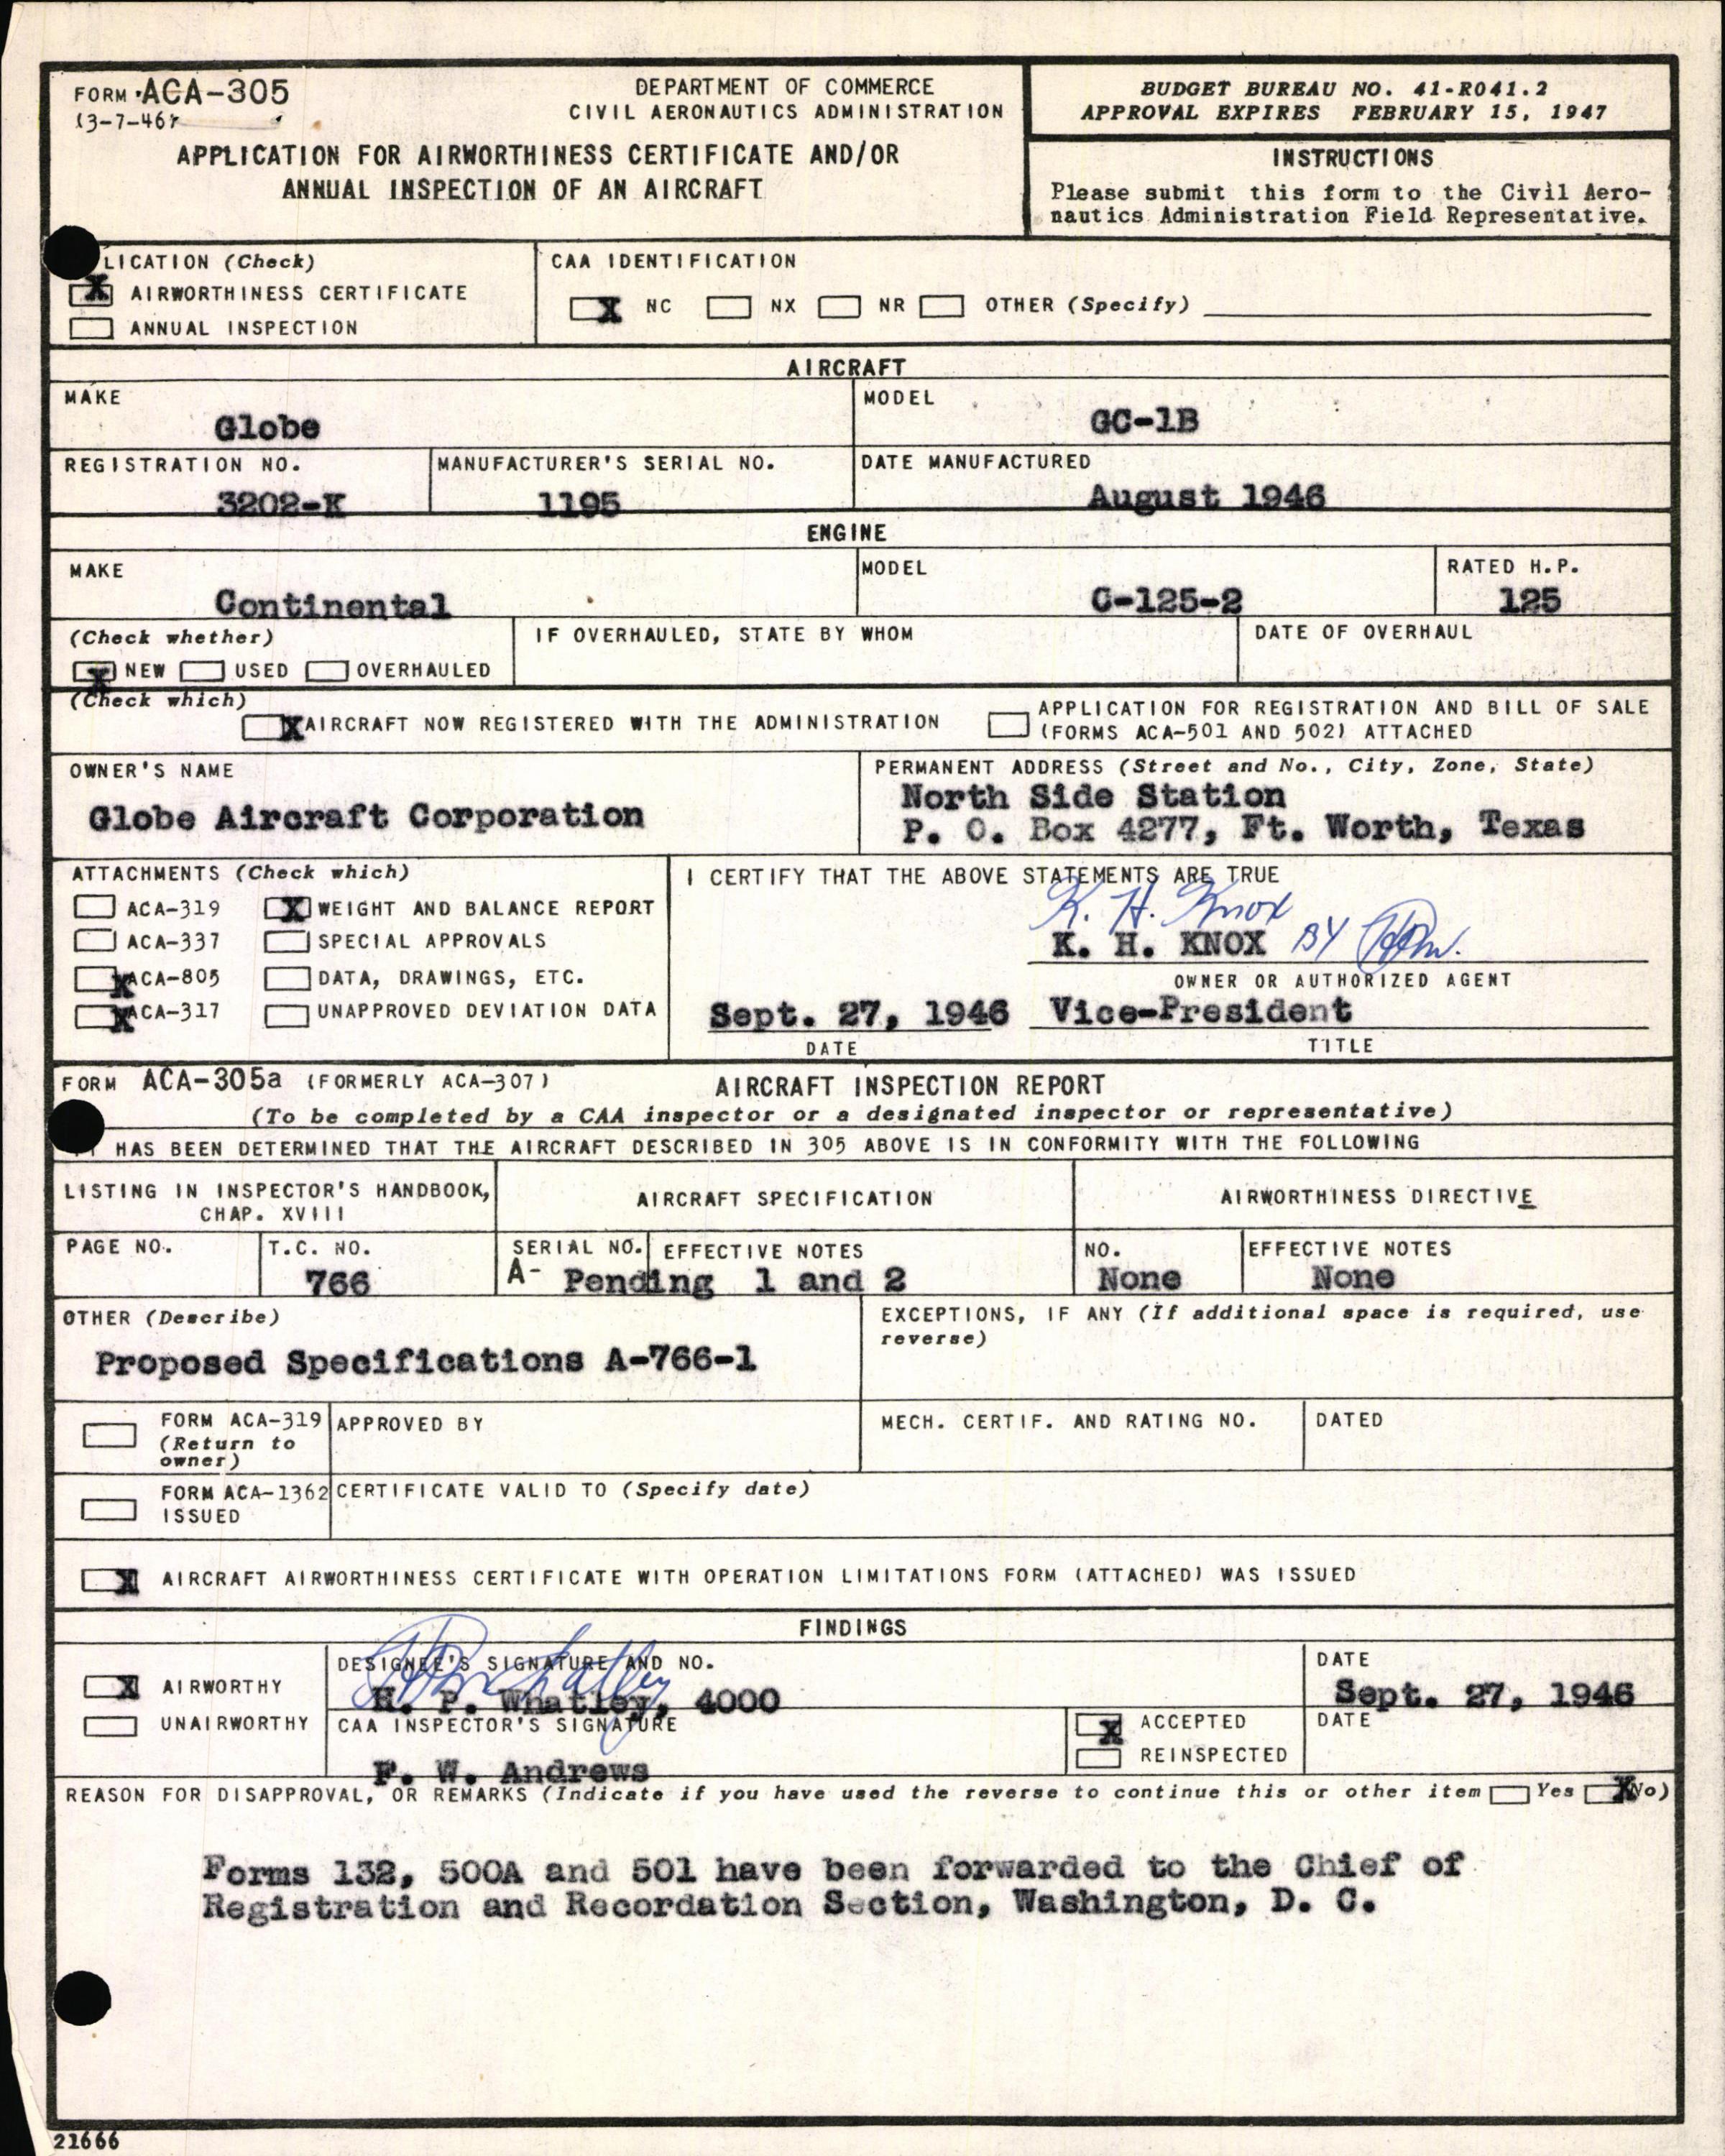 FORM ACA-305
(3-7-46)
DEPARTMENT OF COMMERCE
CIVIL AERONAUTICS ADMINISTRATION
APPLICATION FOR AIRWORTHINESS CERTIFICATE AND/OR
ANNUAL INSPECTION OF AN AIRCRAFT
BUDGET BUREAU NO. 41-R041.2
APPROVAL EXPIRES FEBRUARY 15, 1947
INSTRUCTIONS
Please submit this form to the Civil Aero-
nautics Administration Field Representative.
LICATION (Check)
X AIRWORTHINESS CERTIFICATE
ANNUAL INSPECTION
CAA IDENTIFICATION
X NC NX NR OTHER (Specify)
AIRCRAFT
MAKE
Globe
MODEL
GC-1B
REGISTRATION NO.
3202-K
MANUFACTURER'S SERIAL NO.
1195
DATE MANUFACTURED
August 1946
ENGINE
MAKE
Continental
MODEL
C-125-2
RATED H.P.
125
(Check whether)
X NEW USED OVERHAULED
IF OVERHAULED, STATE BY WHOM
DATE OF OVERHAUL
(Check which)
X AIRCRAFT NOW REGISTERED WITH THE ADMINISTRATION
APPLICATION FOR REGISTRATION AND BILL OF SALE
(FORMS ACA-501 AND 502) ATTACHED
OWNER'S NAME
Globe Aircraft Corporation
PERMANENT ADDRESS (Street and No., City, Zone, State)
North Side Station
P. O. Box 4277, Ft. Worth, Texas
ATTACHMENTS (Check which)
ACA-319 X WEIGHT AND BALANCE REPORT
ACA-337 SPECIAL APPROVALS
X ACA-805 DATA, DRAWINGS, ETC.
X ACA-317 UNAPPROVED DEVIATION DATA
I CERTIFY THAT THE ABOVE STATEMENTS ARE TRUE
K. H. Knox
K. H. KNOX BY
OWNER OR AUTHORIZED AGENT
Sept. 27, 1946 Vice-President
DATE TITLE
FORM ACA-305a (FORMERLY ACA-307) AIRCRAFT INSPECTION REPORT
(To be completed by a CAA inspector or a designated inspector or representative)
HAS BEEN DETERMINED THAT THE AIRCRAFT DESCRIBED IN 305 ABOVE IS IN CONFORMITY WITH THE FOLLOWING
LISTING IN INSPECTOR'S HANDBOOK,
CHAP. XVIII
AIRCRAFT SPECIFICATION
AIRWORTHINESS DIRECTIVE
PAGE NO.
T.C. NO.
766
SERIAL NO. EFFECTIVE NOTES
A- Pending 1 and 2
NO.
None
EFFECTIVE NOTES
None
OTHER (Describe)
Proposed Specifications A-766-1
EXCEPTIONS, IF ANY (If additional space is required, use
reverse)
FORM ACA-319
(Return to
owner)
APPROVED BY
MECH. CERTIF. AND RATING NO.
DATED
FORM ACA-1362
ISSUED
CERTIFICATE VALID TO (Specify date)
X AIRCRAFT AIRWORTHINESS CERTIFICATE WITH OPERATION LIMITATIONS FORM (ATTACHED) WAS ISSUED
FINDINGS
X AIRWORTHY
UNAIRWORTHY
DESIGNEE'S SIGNATURE AND NO.
H. P. Whatley, 4000
DATE
Sept. 27, 1946
CAA INSPECTOR'S SIGNATURE
F. W. Andrews
X ACCEPTED
REINSPECTED
DATE
REASON FOR DISAPPROVAL, OR REMARKS (Indicate if you have used the reverse to continue this or other item Yes X No)
Forms 132, 500A and 501 have been forwarded to the Chief of
Registration and Recordation Section, Washington, D. C.
21666